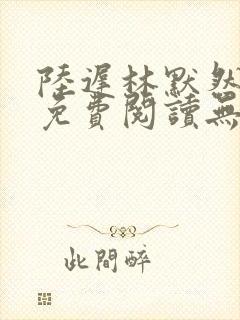 陸遲林默然
免費閱讀無
此間醉